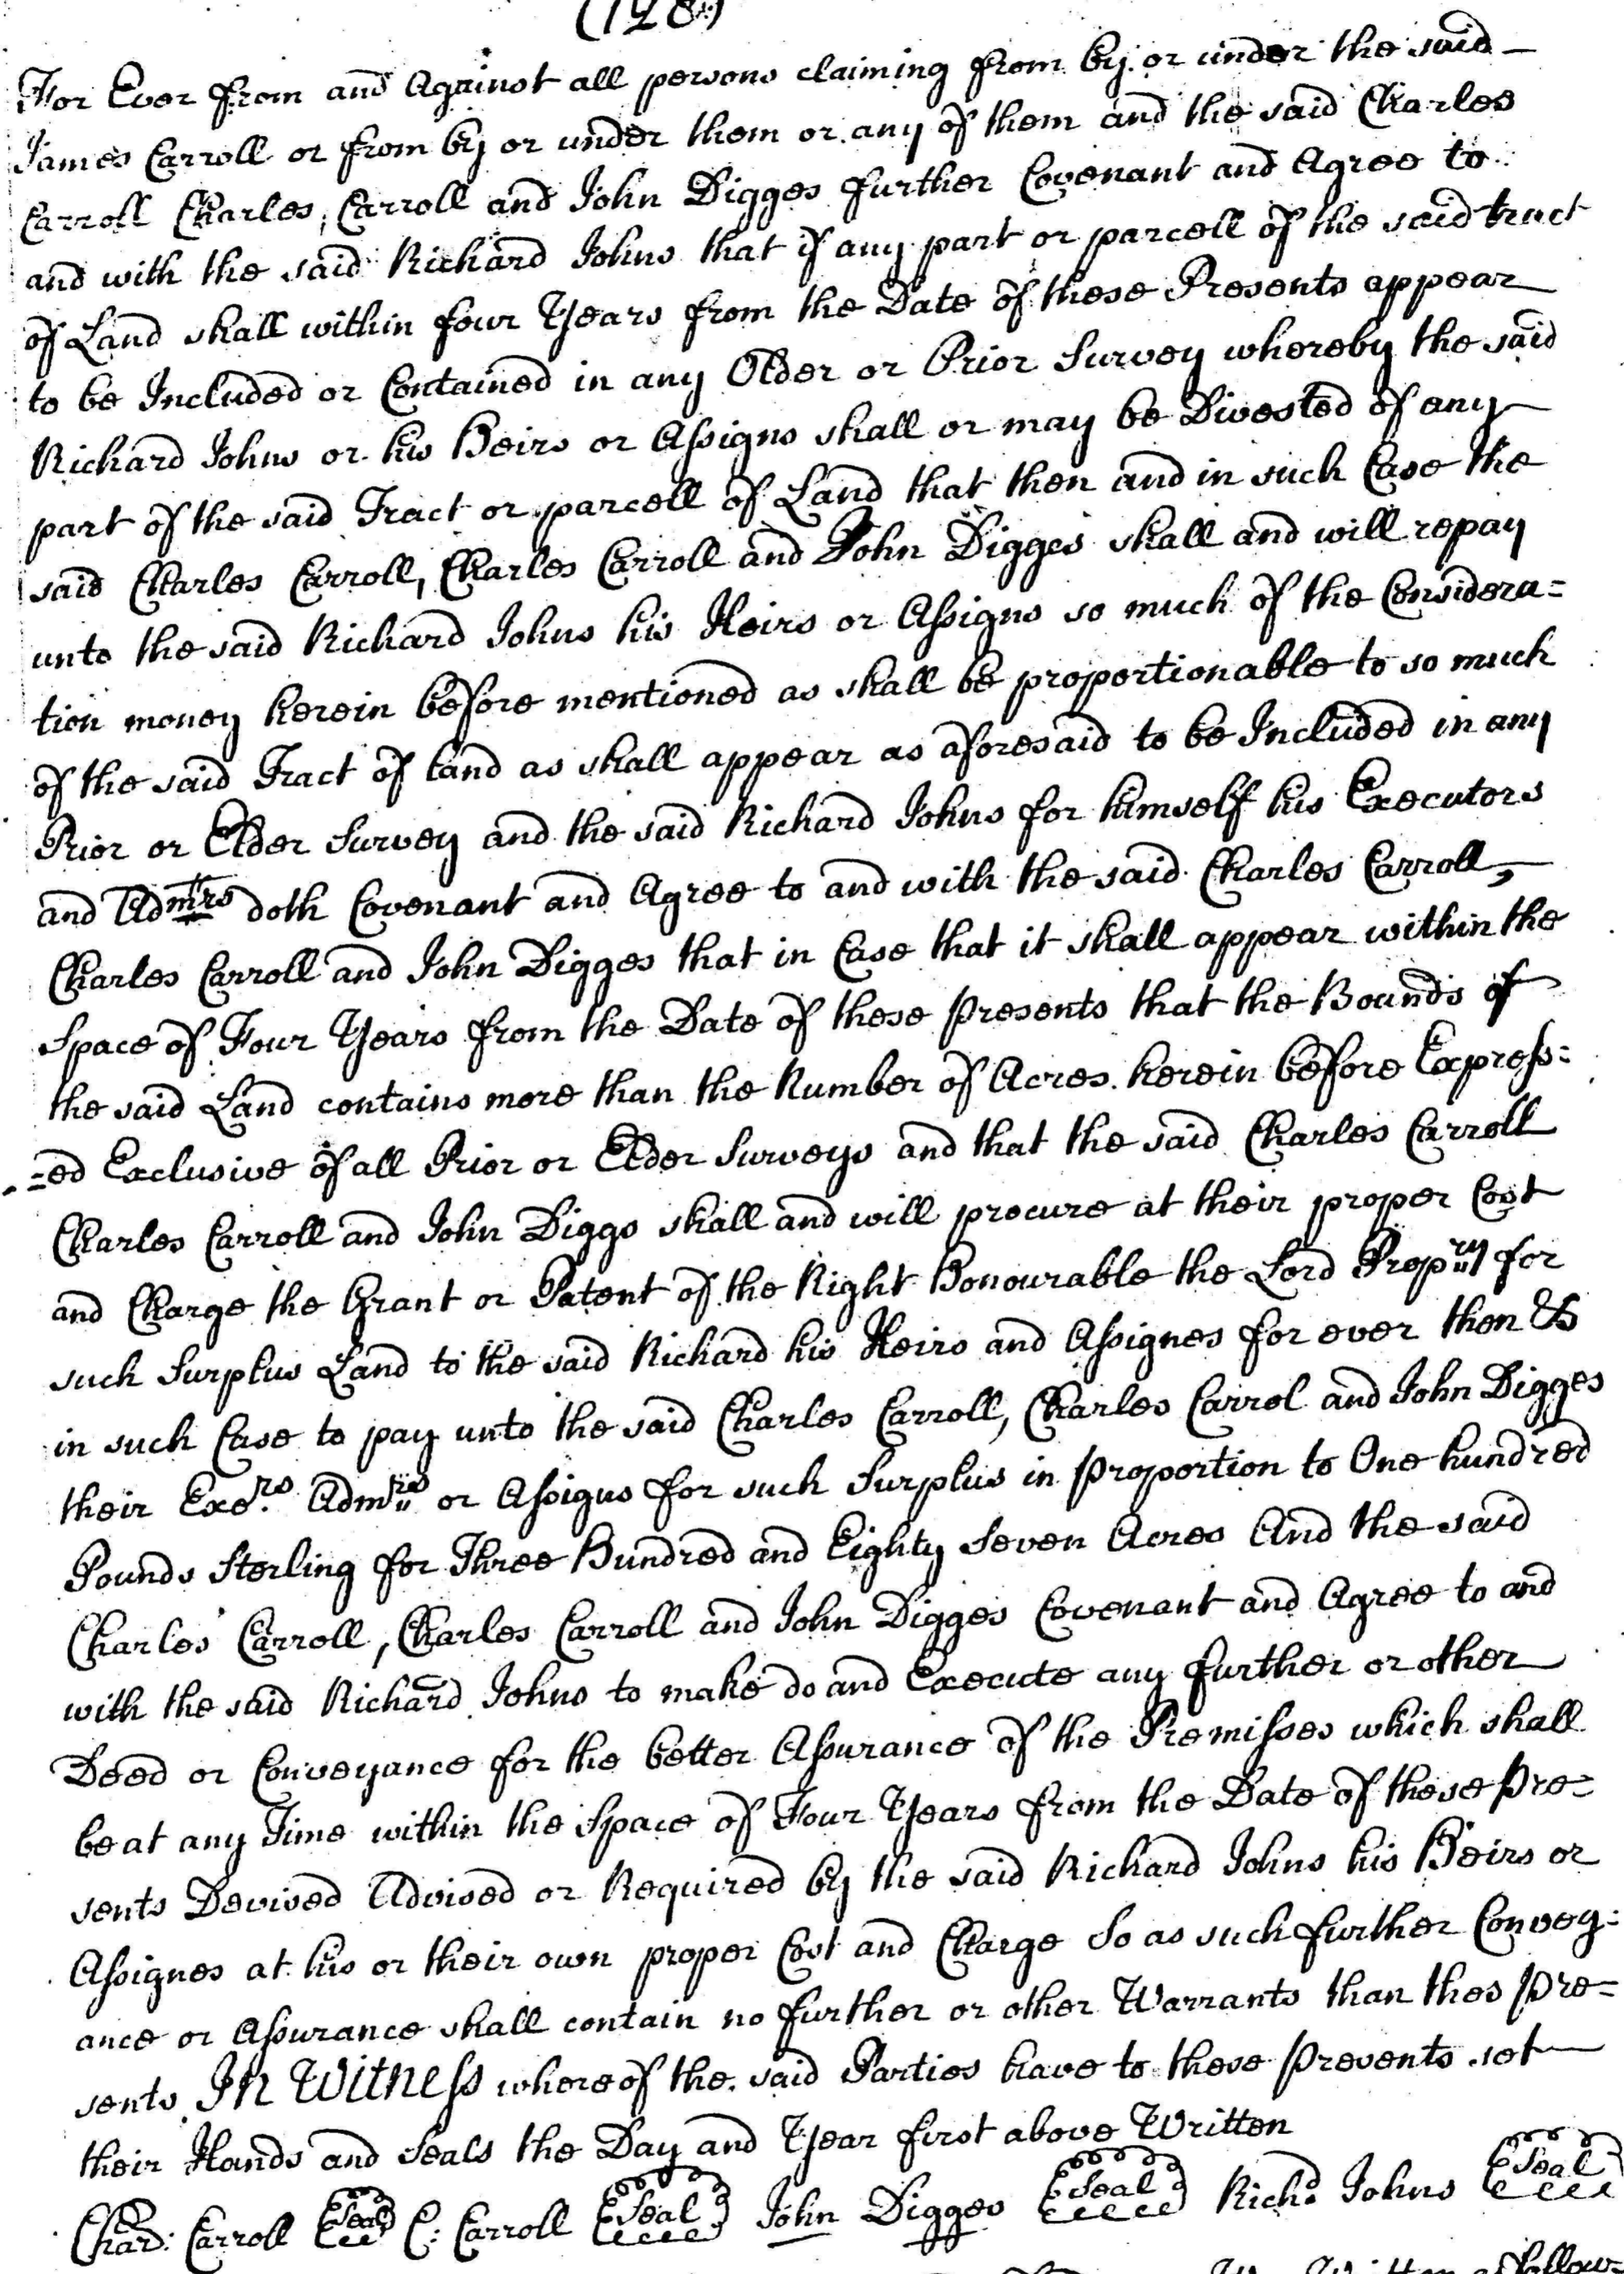 (128)
For Ever from and Against all persons claiming from by or under the said
James Carroll or from by or under them or any of them and the said Charles
Carroll Charles, Carroll and John Digges further Covenant and Agree to
and with the said Richard Johns that if any part or parcell of the said tract
of Land shall within four Years from the Date of these Presents appear
to be Included or Contained in any Older or Prior Survey whereby the said
Richard Johns or his Heirs or Assigns shall or may be Divested of any
part of the said Tract or parcell of Land that then and in such Case the
said Charles Carroll, Charles Carroll and John Digges shall and will repay
unto the said Richard Johns his Heirs or Assigns so much of the Considera=
tion money herein before mentioned as shall be proportionable to so much
of the said Tract of land as shall appear as aforesaid to be Included in any
Prior or Elder Survey and the said Richard Johns for himself his Executors
and Admrs doth Covenant and Agree to and with the said Charles Carroll,
Charles Carroll and John Digges that in Case that it shall appear within the
Space of Four Years from the Date of these Presents that the Bounds of
the said Land contains more than the Number of Acres herein before Express=
=ed Exclusive of all Prior or Elder Surveys and that the said Charles Carroll
Charles Carroll and John Diggs shall and will procure at their proper Cost
and Charge the Grant or Patent of the Right Honourable the Lord Propry for
such Surplus Land to the said Richard his Heirs and Assignes for ever then &
in such Case to pay unto the said Charles Carroll, Charles Carrol and John Digges
their Exers Admrs or Assigns for such Surplus in Proportion to One hundred
Pounds Sterling for Three Hundred and Eighty Seven Acres And the said
Charles Carroll, Charles Carroll and John Digges Covenant and Agree to and
with the said Richard Johns to make do and Execute any further or other
Deed or Conveyance for the better Assurance of the Premisses which shall
be at any Time within the Space of Four Years from the Date of these Pre=
sents Devised Advised or Required by the said Richard Johns his Heirs or
Assignes at his or their own proper Cost and Charge So as such further Convey=
ance or Assurance shall contain no further or other Warrants than thes Pre=
sents In Witness whereof the said Parties have to these Presents set
their Hands and Seals the Day and Year first above Written
Char: Carroll Seal C: Carroll Seal John Digges Seal Richd. Johns Seal